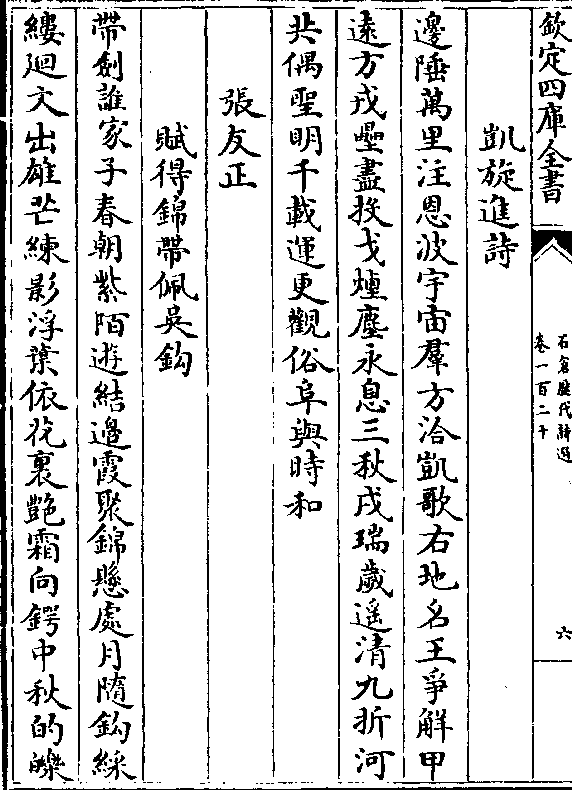 欽定四庫全書
石倉歷代詩選
卷一百二十
六
凱旋進詩
邊陲萬里注恩波宇宙羣方洽凱歌右地名王爭解甲
遠方戎壘盡投戈煙塵永息三秋戍瑞歲遥清九折河
共偶聖明千載運更觀俗阜與時和
張友正
賦得錦帶佩吳鈎
帶劍誰家子春朝紫陌遊結邊霞聚錦懸處月隨鈎綵
縷廻文出雄芒練影浮葉依花裏艷霜向鍔中秋的皪